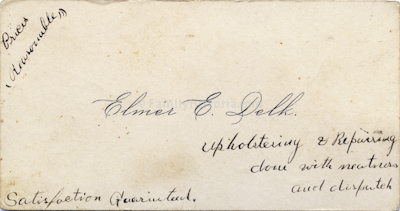 Prices
(Reasonable)
Elmer E. Delk.
Upholstering & Repairing
done with neatness
and dispatch
Satisfaction Guarinteed.